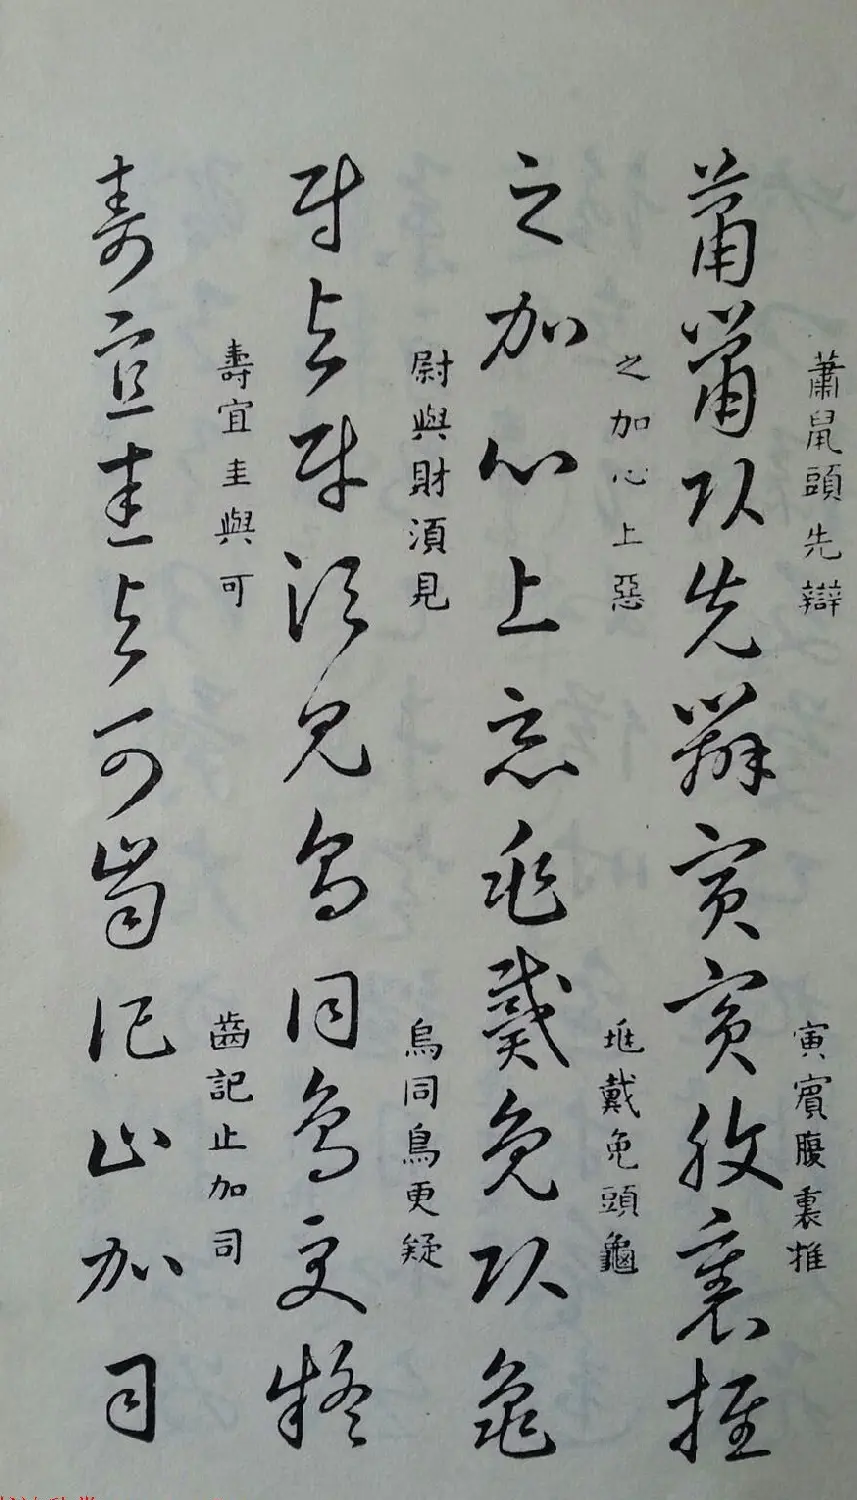 蕭鼠頭先辯 寅賓腹裏推
蕭鼠頭先辯寅賓腹裏推
之加心上惡 兆戴免頭龜
之加心上惡兆戴免頭龜
尉與財湏見 烏同鳥更疑
尉與財須見烏同鳥更疑
壽宜圭與可 齒記止加司
壽宜圭與可齒記止加司